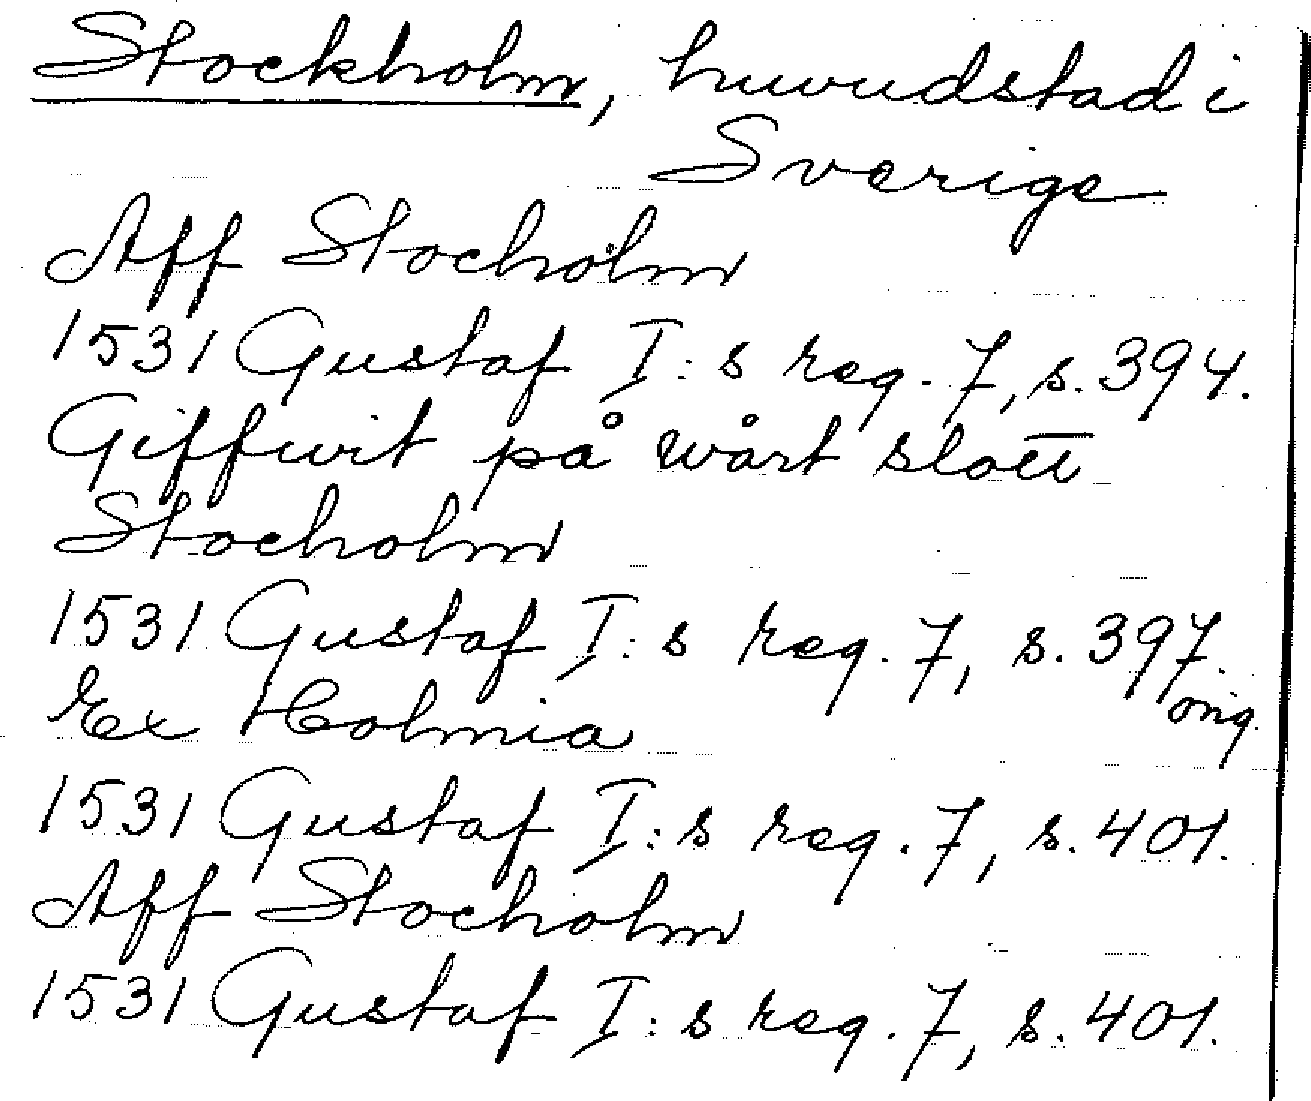 Stockholm, huvudstad i
Sverige
Aff Stocholm
1531 Gustaf I:s reg. 7, s. 394.
Giffwit på wårt slott
Stocholm
1531 Gustaf I:s reg. 7, s. 397.
orig.
Ex Holmia
1531 Gustaf I:s reg. 7, s. 401.
Aff Stocholm
1531 Gustaf I:s reg. 7, s. 401.